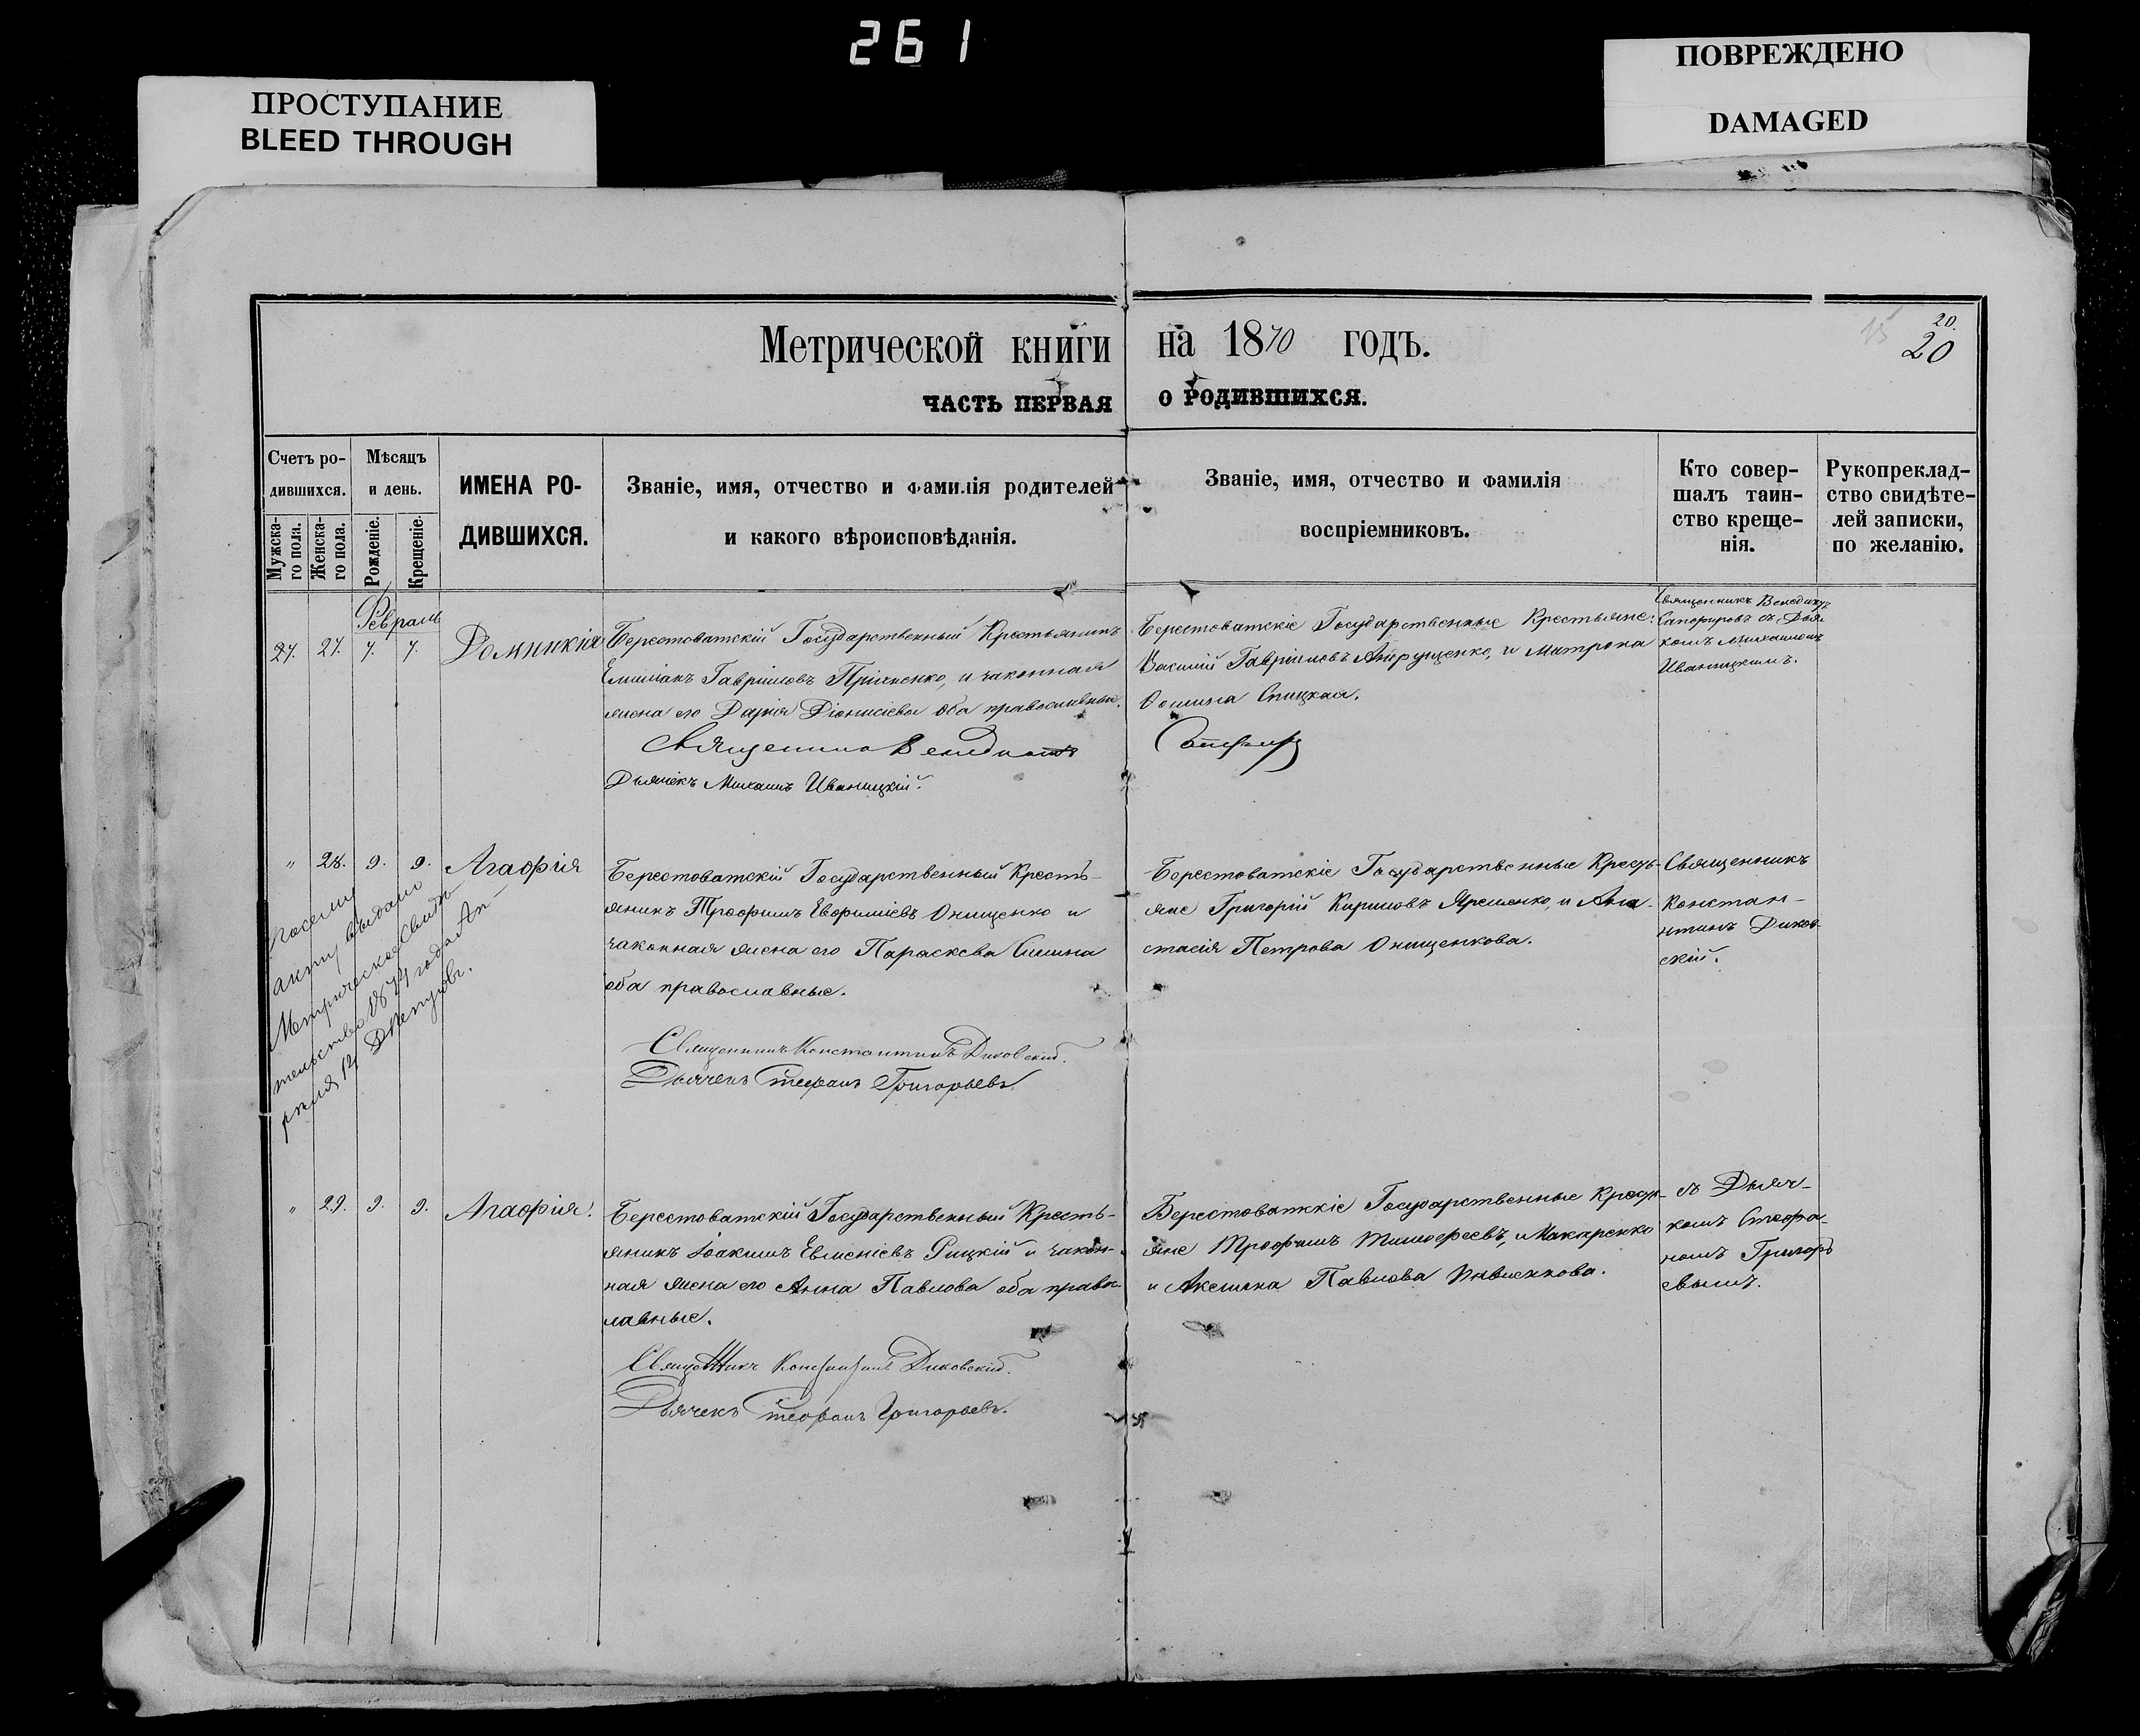 261
ПРОСТУПАНИЕ
BLEED THROUGH
ПОВРЕЖДЕНО
DAMAGED
Метрической книги на 1870 годъ.
20.
20
15
ЧАСТЬ ПЕРВАЯ о РОДИВШИХСЯ.
Счетъ ро-
дившихся.
Мужска-
го пола.
Женска-
го пола.
Мѣсяцъ
и день.
Рожденіе.
Крещеніе.
ИМЕНА РО-
ДИВШИХСЯ.
Званіе, имя, отчество и фамилія родителей
и какого вѣроисповѣданія.
Званіе, имя, отчество и фамилія
воспріемниковъ.
Кто совер-
шалъ таин-
ство креще-
нія.
Рукопреклад-
ство свидѣте-
лей записки,
по желанію.
Февраль
27. 27. 7. 7. Домникія
Берестоватскій Государственный Крестьянинъ
Емиліанъ Гавріиловъ и законная
жена его Дарія Діонисіева оба православные.
Священникъ Венедиктъ
Дьячекъ Михаилъ Иваницкій.
Берестоватскіе Государственные Крестьяне:
Василій Гавріиловъ и Матрона
Спицкая.
Священникъ Венедиктъ
Сапфировъ съ Дьяч-
комъ Михаиломъ
Иваницкимъ.
" 28. 9. 9. Агафія
Посему
акту выдано
Метрическое Свидѣ-
тельство 1874 года Ап-
рѣля 12
Берестоватскій Государственный Кресть-
янинъ Трофимъ Евфиміевъ Онищенко и
законная жена его Параскева Симина
оба православные.
Священникъ Константинъ Диковскій.
Дьячекъ Стефанъ Григорьевъ.
Берестоватскіе Государственные Кресть-
яне Григорій Кириловъ Яременко, и Ана-
стасія Петрова Онищенкова.
Священникъ
Констан-
тинъ Диков-
скій.
" 29. 9. 9. Агафія.
Берестоватскій Государственный Кресть-
янинъ Іоакимъ Евменіевъ Рицкій и закон-
ная жена его Анна Павлова оба правос-
лавные.
Священникъ Константинъ Диковскій.
Дьячекъ Стефанъ Григорьевъ.
Берестоватскіе Государственные Кресть-
яне Трофимъ Тимофеевъ, Макаренко
и Аксинья Павлова
съ Дьяч-
комъ Стефа-
номъ Григорь
евымъ.